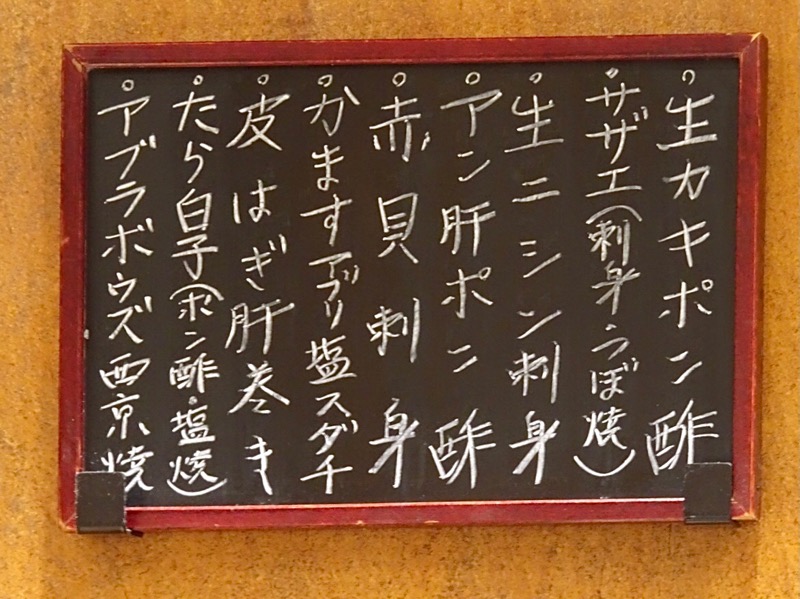 。生カキポン酢
。サザエ(刺身・つぼ焼)
。生ニシン刺身
。アン肝ポン酢
。赤貝刺身
。かますアブリ塩スダチ
。皮はぎ肝巻き
。たら白子(ポン酢・塩焼)
。アブラボウズ西京焼